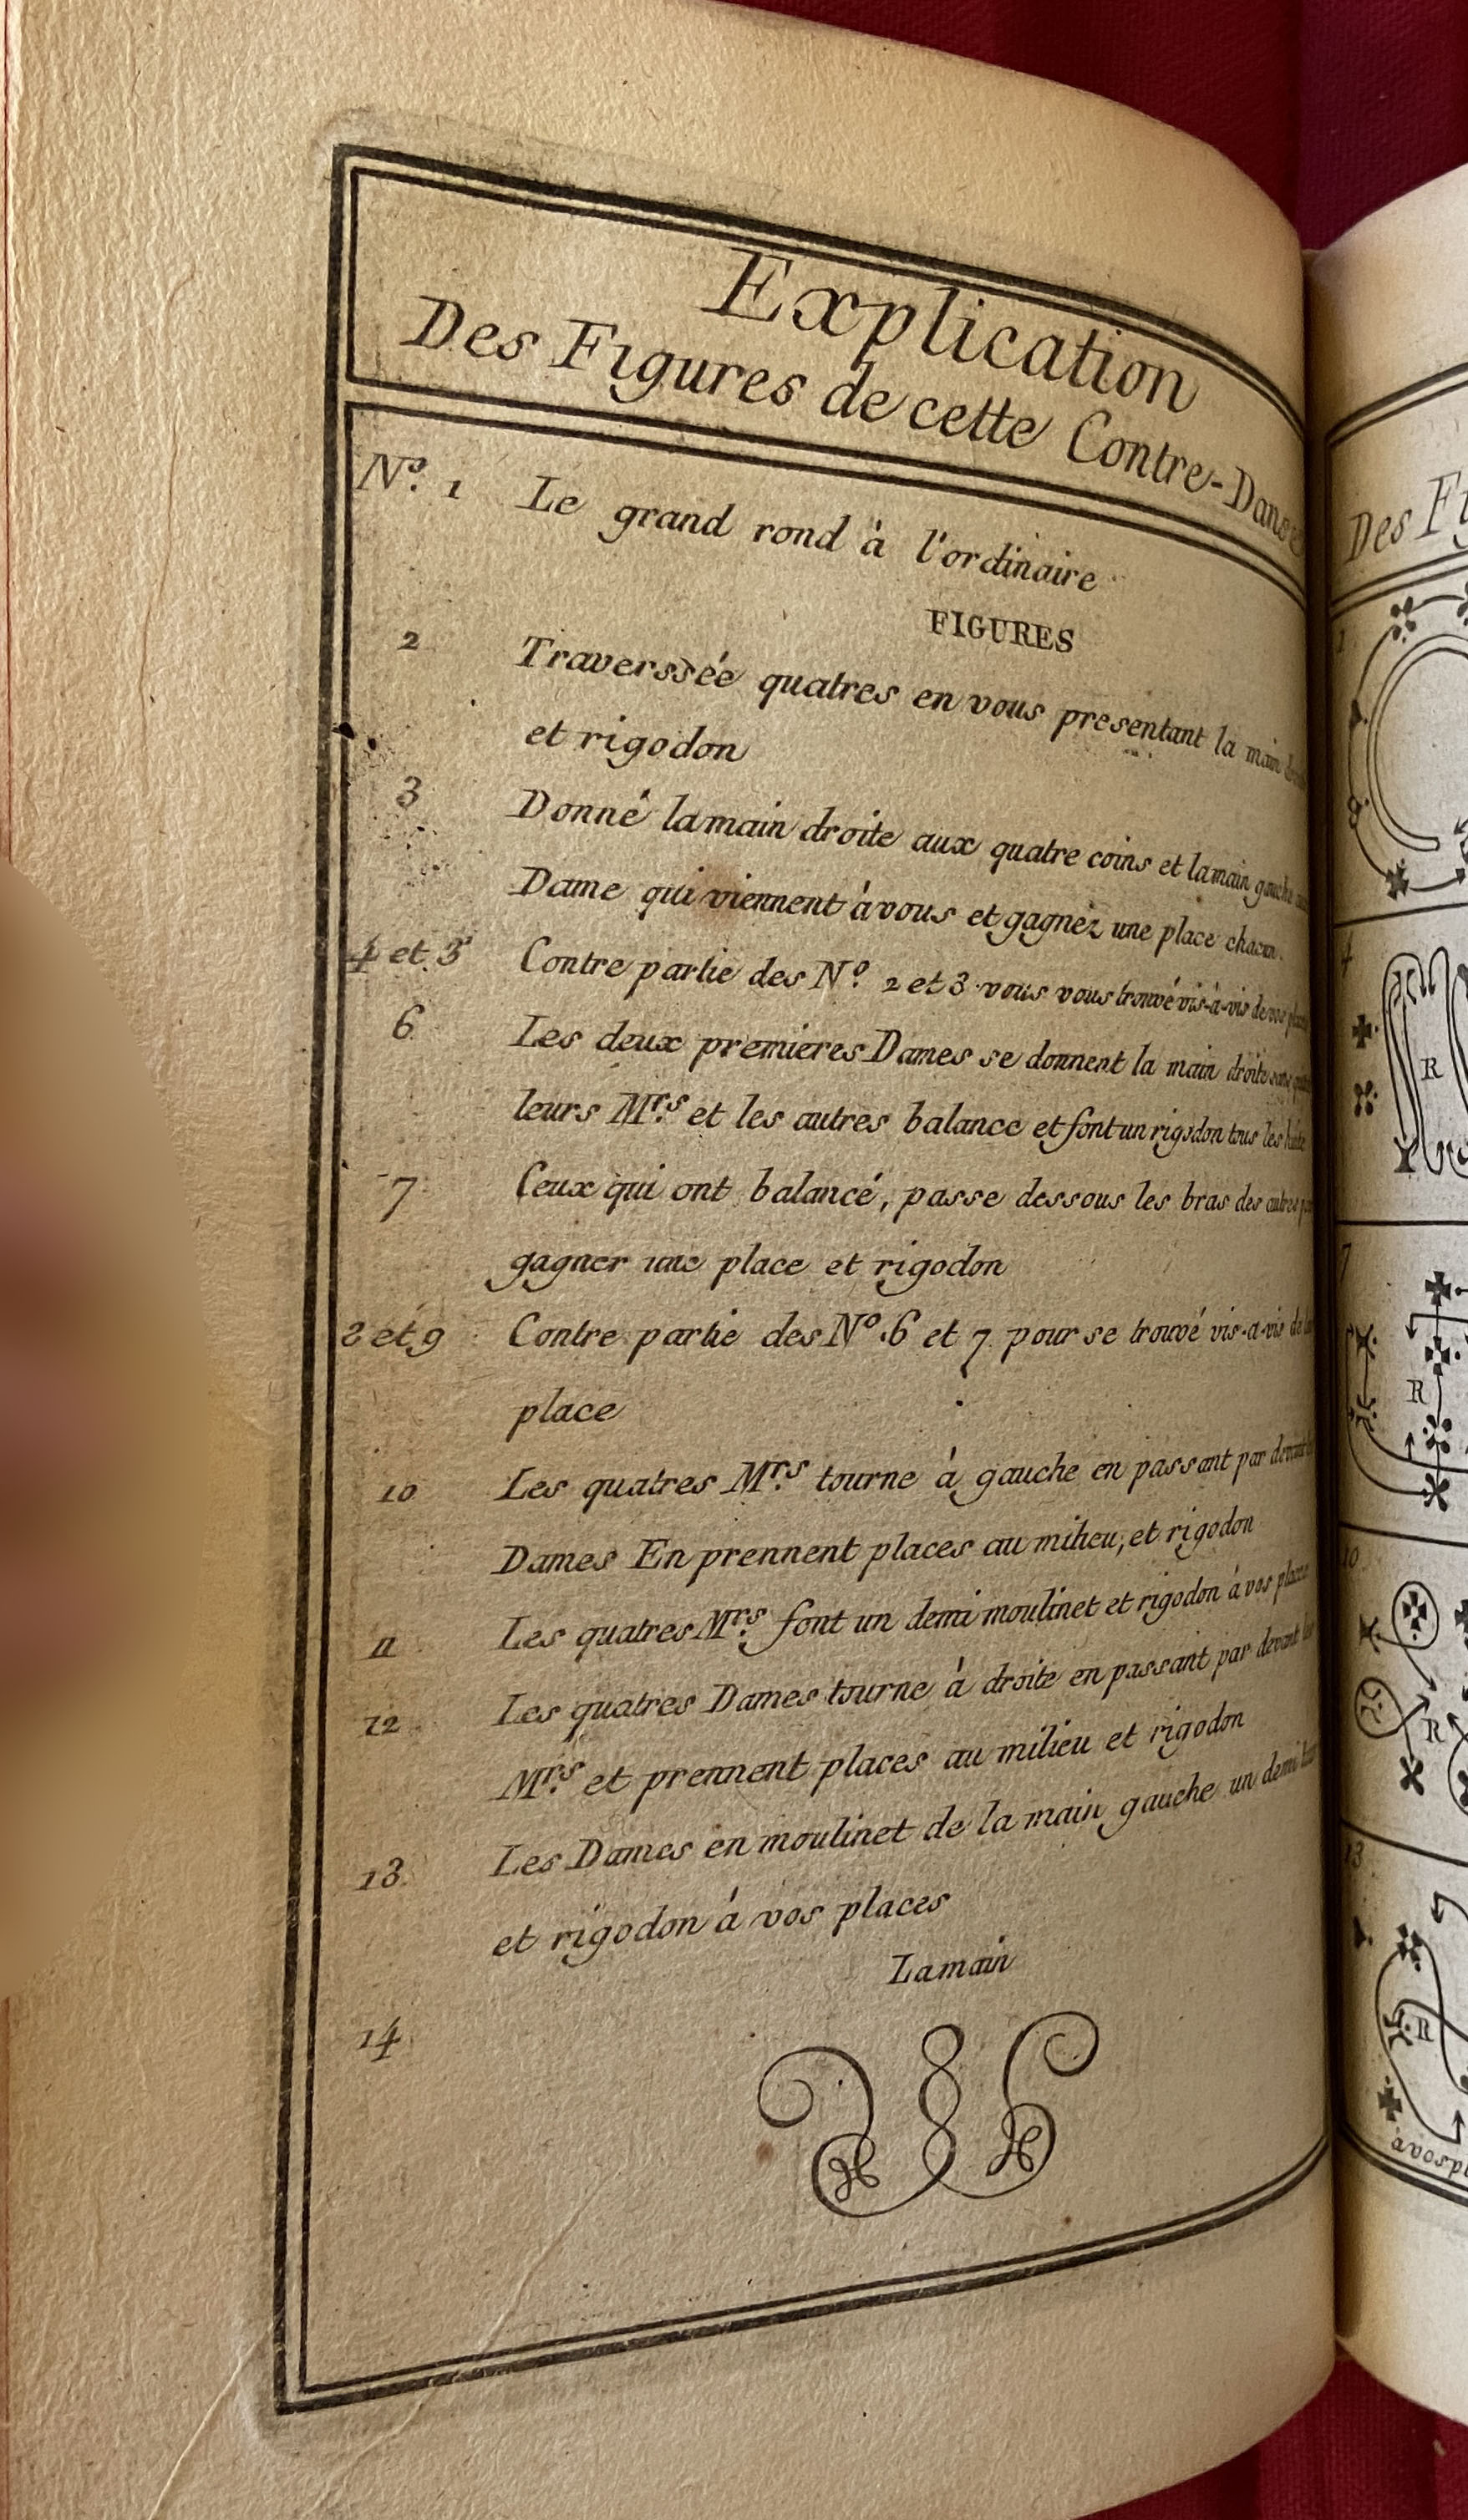 Explication
Des Figures de cette Contre-Danse
Nº. 1 Le grand rond à l'ordinaire
FIGURES
2 Traverssée quatres en vous presentant la main
et rigodon
3 Donné lamain droite aux quatre coins et lamain gauche
Dame qui viennent àvous et gagnez une place chacun.
4 et 5 Contre partie des Nº. 2 et 3 vous vous trouvé vis-à-vis de vos
6 Les deux premieres Dames se donnent la main droite sans
leurs Mrs. et les autres balance et font un rigodon tous les huit
7 Ceux qui ont balancé, passe dessous les bras des autres
gagner une place et rigodon
8 et 9 Contre partie des Nº. 6 et 7 pour se trouvé vis-a-vis de
place
10 Les quatres Mrs. tourne à gauche en passant par devant
Dames En prennent places au milieu, et rigodon
11 Les quatres Mrs. font un demi moulinet et rigodon à vos places
12 Les quatres Dames tourne à droite en passant par devant les
Mrs. et prennent places au milieu et rigodon
13 Les Dames en moulinet de la main gauche un demi tour
et rigodon à vos places
14 Lamain
Des
1
4
R
7
R
10
R
13
R